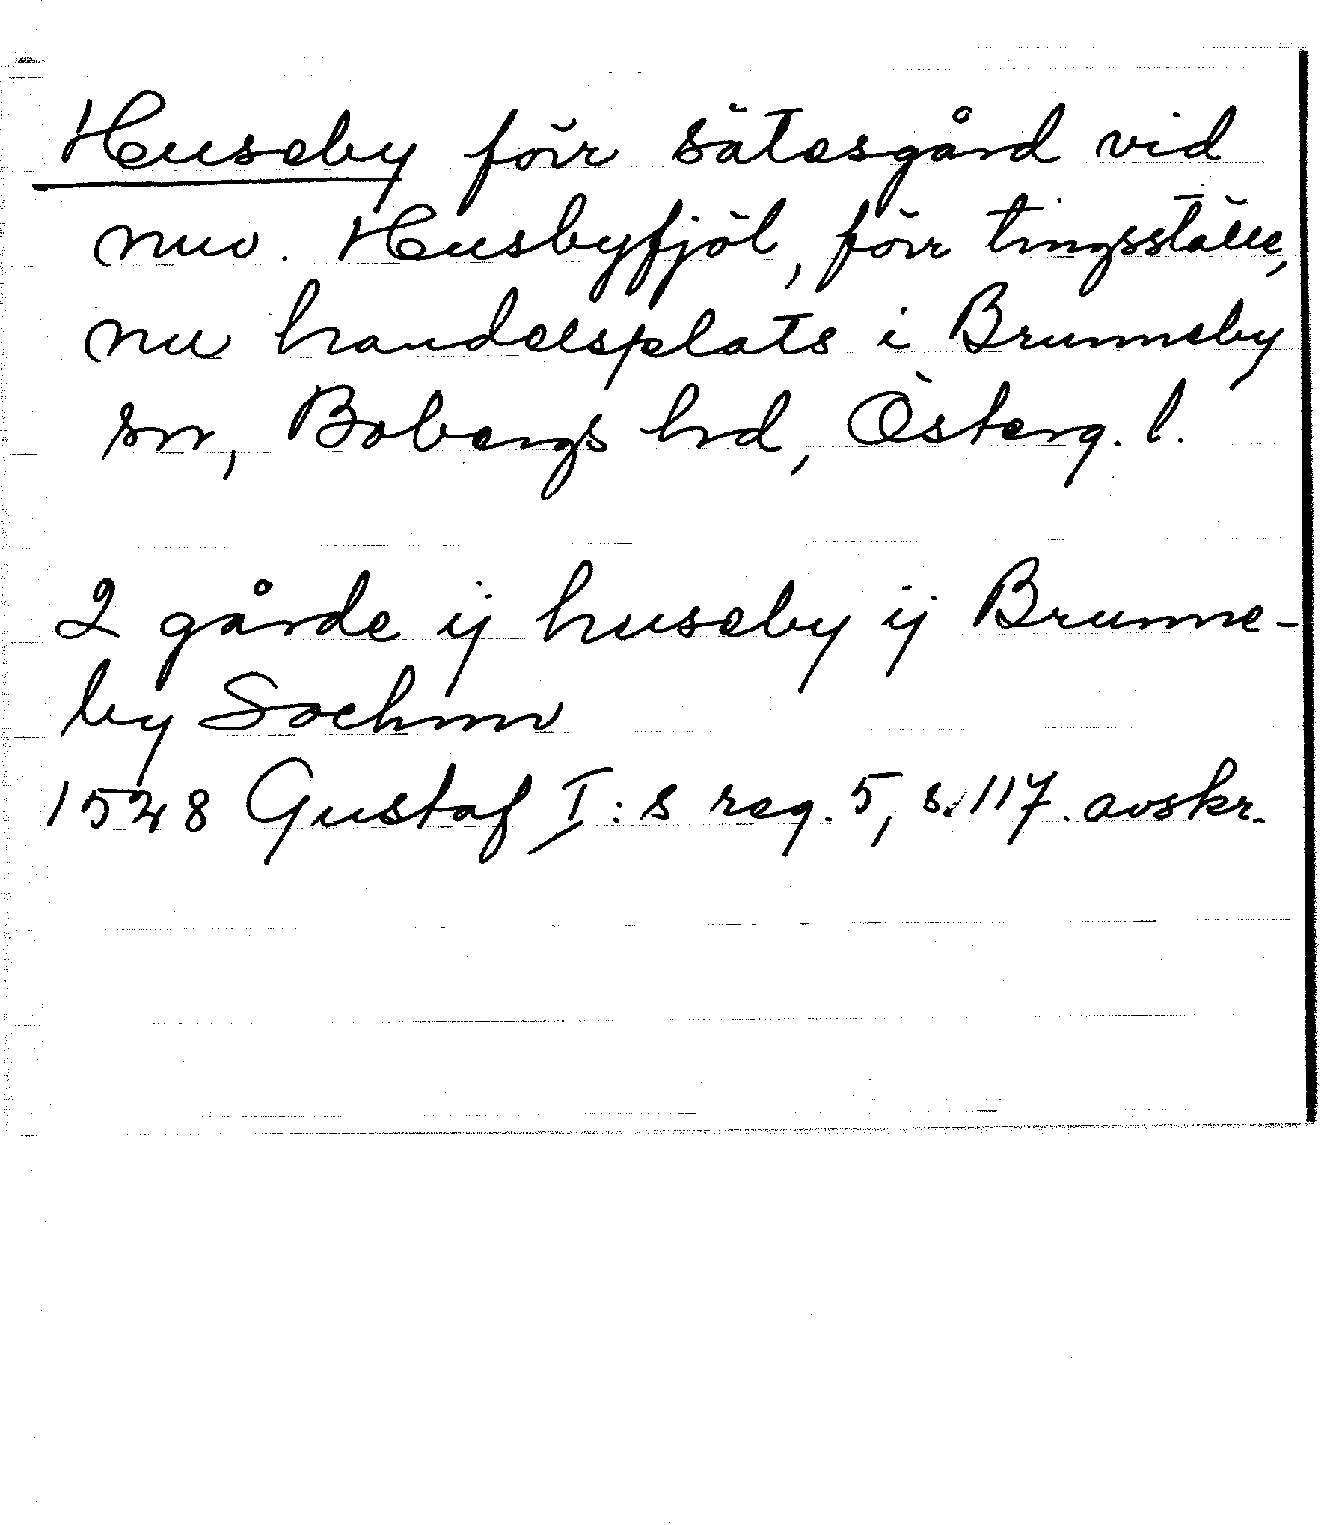 Huseby förr sätesgård vid
nuv. Husbyfjöl, förr tingsställe,
nu handelsplats i Brunneby
sn, Bobergs hd, Österg. l.
2 gårde ij huseby ij Brunne-
by Sochnn
1528 Gustaf I:s reg. 5, s. 117. avskr.